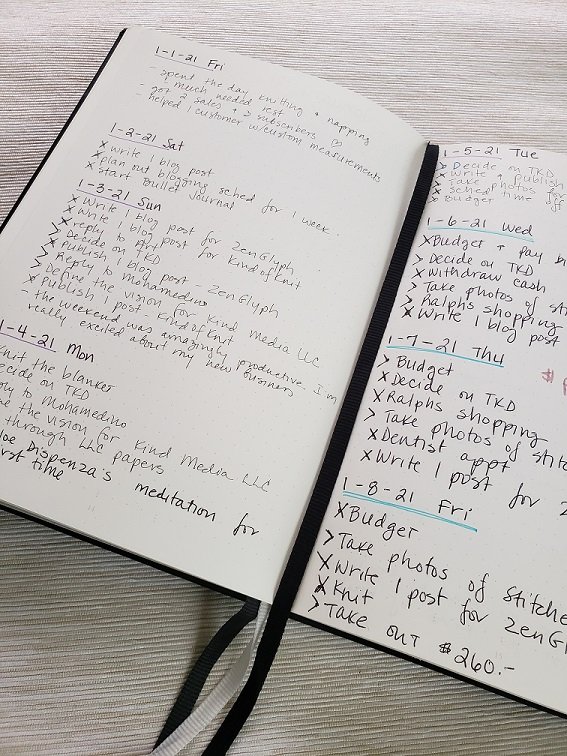 1-1-21 Fri
- spent the day knitting & napping
much needed rest
- got 2 sales + 2 subscribers
- helped 1 customer w/custom measurements
1-2-21 Sat
x write 1 blog post
x plan out blogging sched for 1 week
x start Bullet Journal
1-3-21 Sun
x Write 1 blog post for ZenGlyph
x Write 1 blog post for KindofKnit
x reply to
> Decide on TKD
x Publish 1 blog post - ZenGlyph
> Reply to Mohamedino
> Define the vision for Kind Media LLC
x Publish 1 post - KindofKnit
- the weekend was amazingly productive. I'm
really excited about my new business
1-4-21 Mon
Knit the blanket
ecide on TKD
ply to Mohamedino
ne the vision for Kind Media LLC
through LLC papers
oe Dispenza's meditation for
rst time
1-5-21 Tue
> Decide on TKD
x Write & publish
> Take photos for
x Sched time for
> Budget
1-6-21 Wed
x Budget + pay
> Decide on TKD
x Withdraw cash
> Take photos of sti
> Ralphs shopping
x Write 1 blog post
1-7-21 Thu
> Budget
x Decide on TKD
x Ralphs shopping
> Take photos of stitc
x Dentist appt
x Write 1 post for Z
1-8-21 Fri
x Budget
> Take photos of stitche
x Write 1 post for ZenGl
x Knit
> Take out $260.-